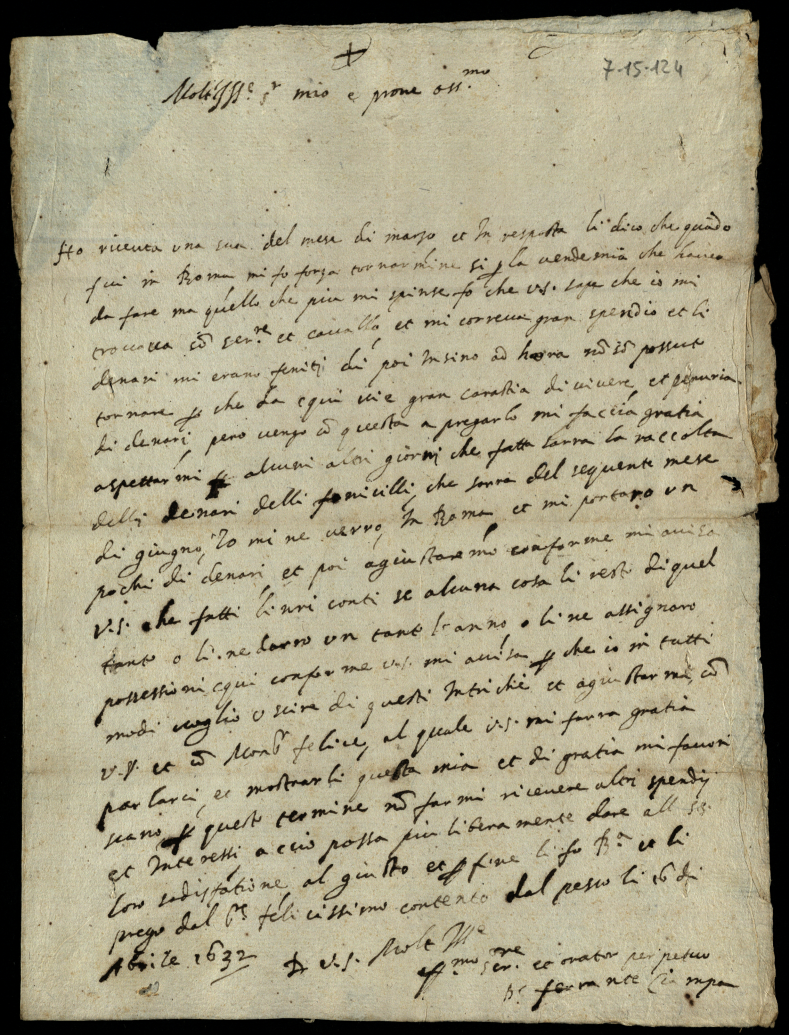 7-15-124
Molt Ill.e s.r mio e prone oss.mo
Ho riceuta una sua del mese di marzo et In resposta li dico che quãdo
fui in Roma mi fo forza tornarmene si p la vendemia che haveo
da fare ma quello che piu mi spinse fo che v.s. sape che io mi
trovava cõ ser.re et cavallo et mi correva gran spendio et li
denari mi erano feniti di poi Insino ad hora nõ sõ possuto
tornare p che da equi vi e gran carastia di vivere et penuria
di denari, pero vengo cõ questa a pregarlo mi faccia gratia
aspettarmi p alcuni altri giorni che fatta sarra la raccolta
delli denari delli fonicelli, che sarra del sequente mese
di giugno, Io mi ne verro, In Roma et mi portaro un
pochi di denari et poi agiustaremo conforme mi avisa
v.s. che fatti li nri conti se alcuna cosa li resto di quel
tanto o li ne darro un tanto l'anno o li ne assignaro
possessioni equi conforme v.s. mi avisa p che io in tutti
modi voglio uscire di questi Intrichi et agiustarmi, cõ
v.s. et cõ Mons.r felice, al quale v.s. mi farra gratia
parlarci, et mostrarli questa mia et di gratia mi favori
scano p questo termine nõ farmi ricevere altri spendij
et Interessi, a ccio possa piu liberamente dare all ss.
loro sadisfatione, al giusto et p fine li fo R.a et li
prego dal s.r felicissimo contento dal pesco li 16 di
Aprile 1632
D v.s. Molt Ill.e
aff.mo ser.re et orator perpetuo
ferrante Ciampa